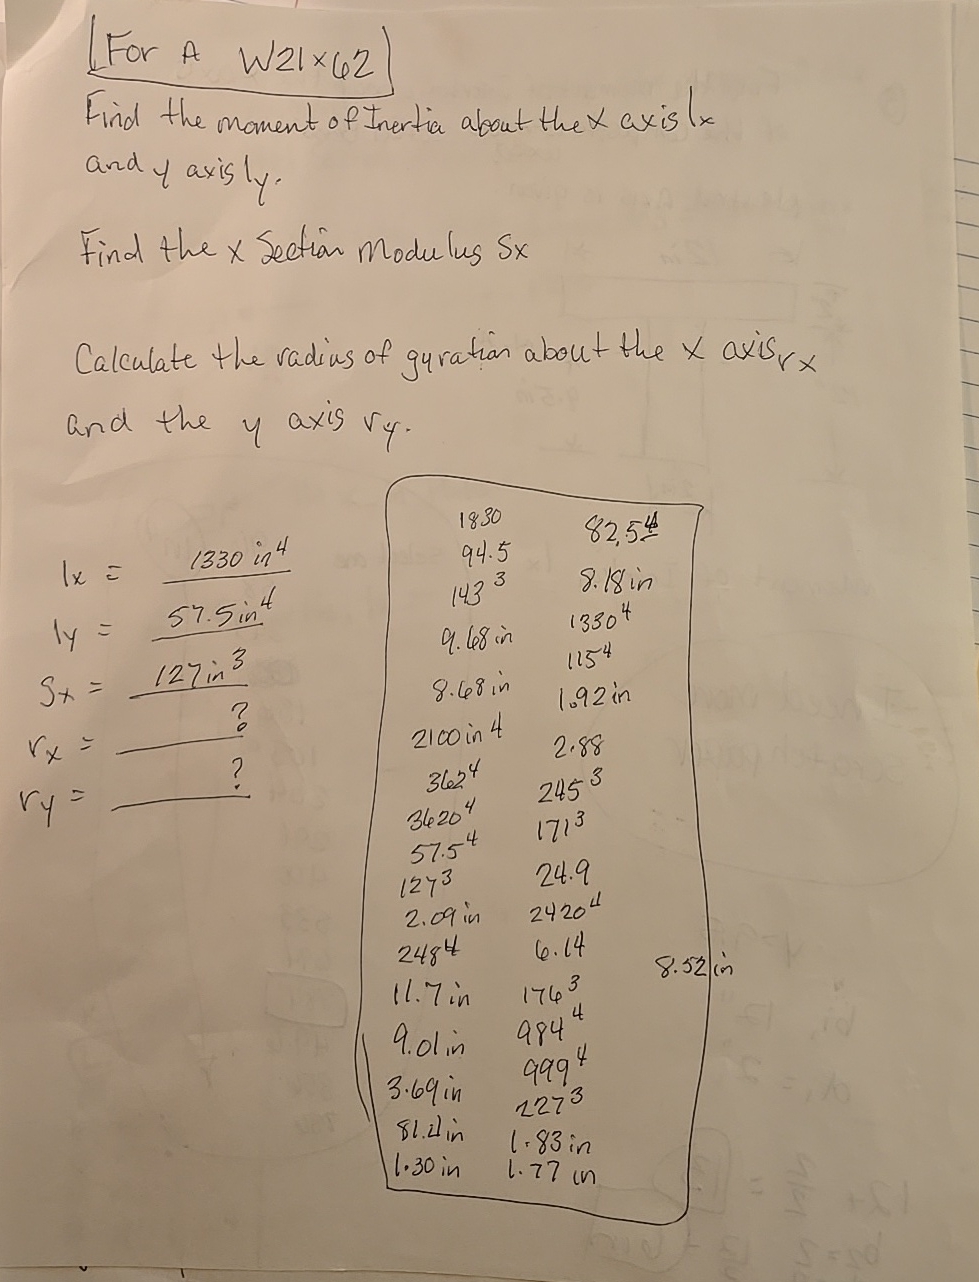 For A W21×62
Find the moment of Inertia about the x axis Ix
and y axis Iy.
Find the x Section Modulus Sx
Calculate the radius of gyration about the x axis rx
and the y axis ry.
Ix = 1330 in⁴
Iy = 57.5 in⁴
Sx = 127 in³
rx = ?
ry = ?
1830
94.5
143³
9.68 in
8.68 in
2100 in⁴
362⁴
3620⁴
57.5⁴
127³
2.09 in
248⁴
11.7 in
9.01 in
3.69 in
81.4 in
1.30 in
82.5⁴
8.18 in
1330⁴
115⁴
1.92 in
2.88
245³
171³
24.9
2420⁴
6.14
176³
984⁴
999⁴
227³
1.83 in
1.77 in
8.52 in